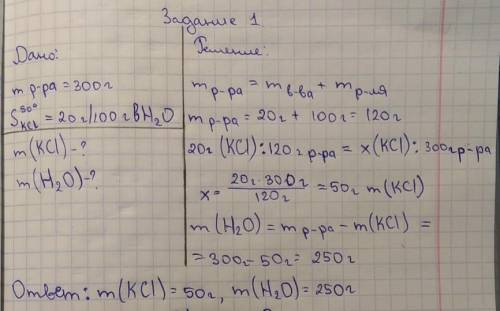 Задание 1.
Дано:
m р-ра = 300г
S⁵⁰°KCl = 20г/100г в H₂O
m(KCl)-?
m(H₂O)-?
Решение:
m р-ра = m в-ва + m р-ля
m р-ра = 20г + 100г = 120г
20г (KCl) : 120г р-ра = x(KCl) : 300г р-ра
x = 20г · 300г / 120г = 50г m(KCl)
m(H₂O) = m р-ра - m(KCl) =
= 300г - 50г = 250г
Ответ: m(KCl) = 50г, m(H₂O) = 250г